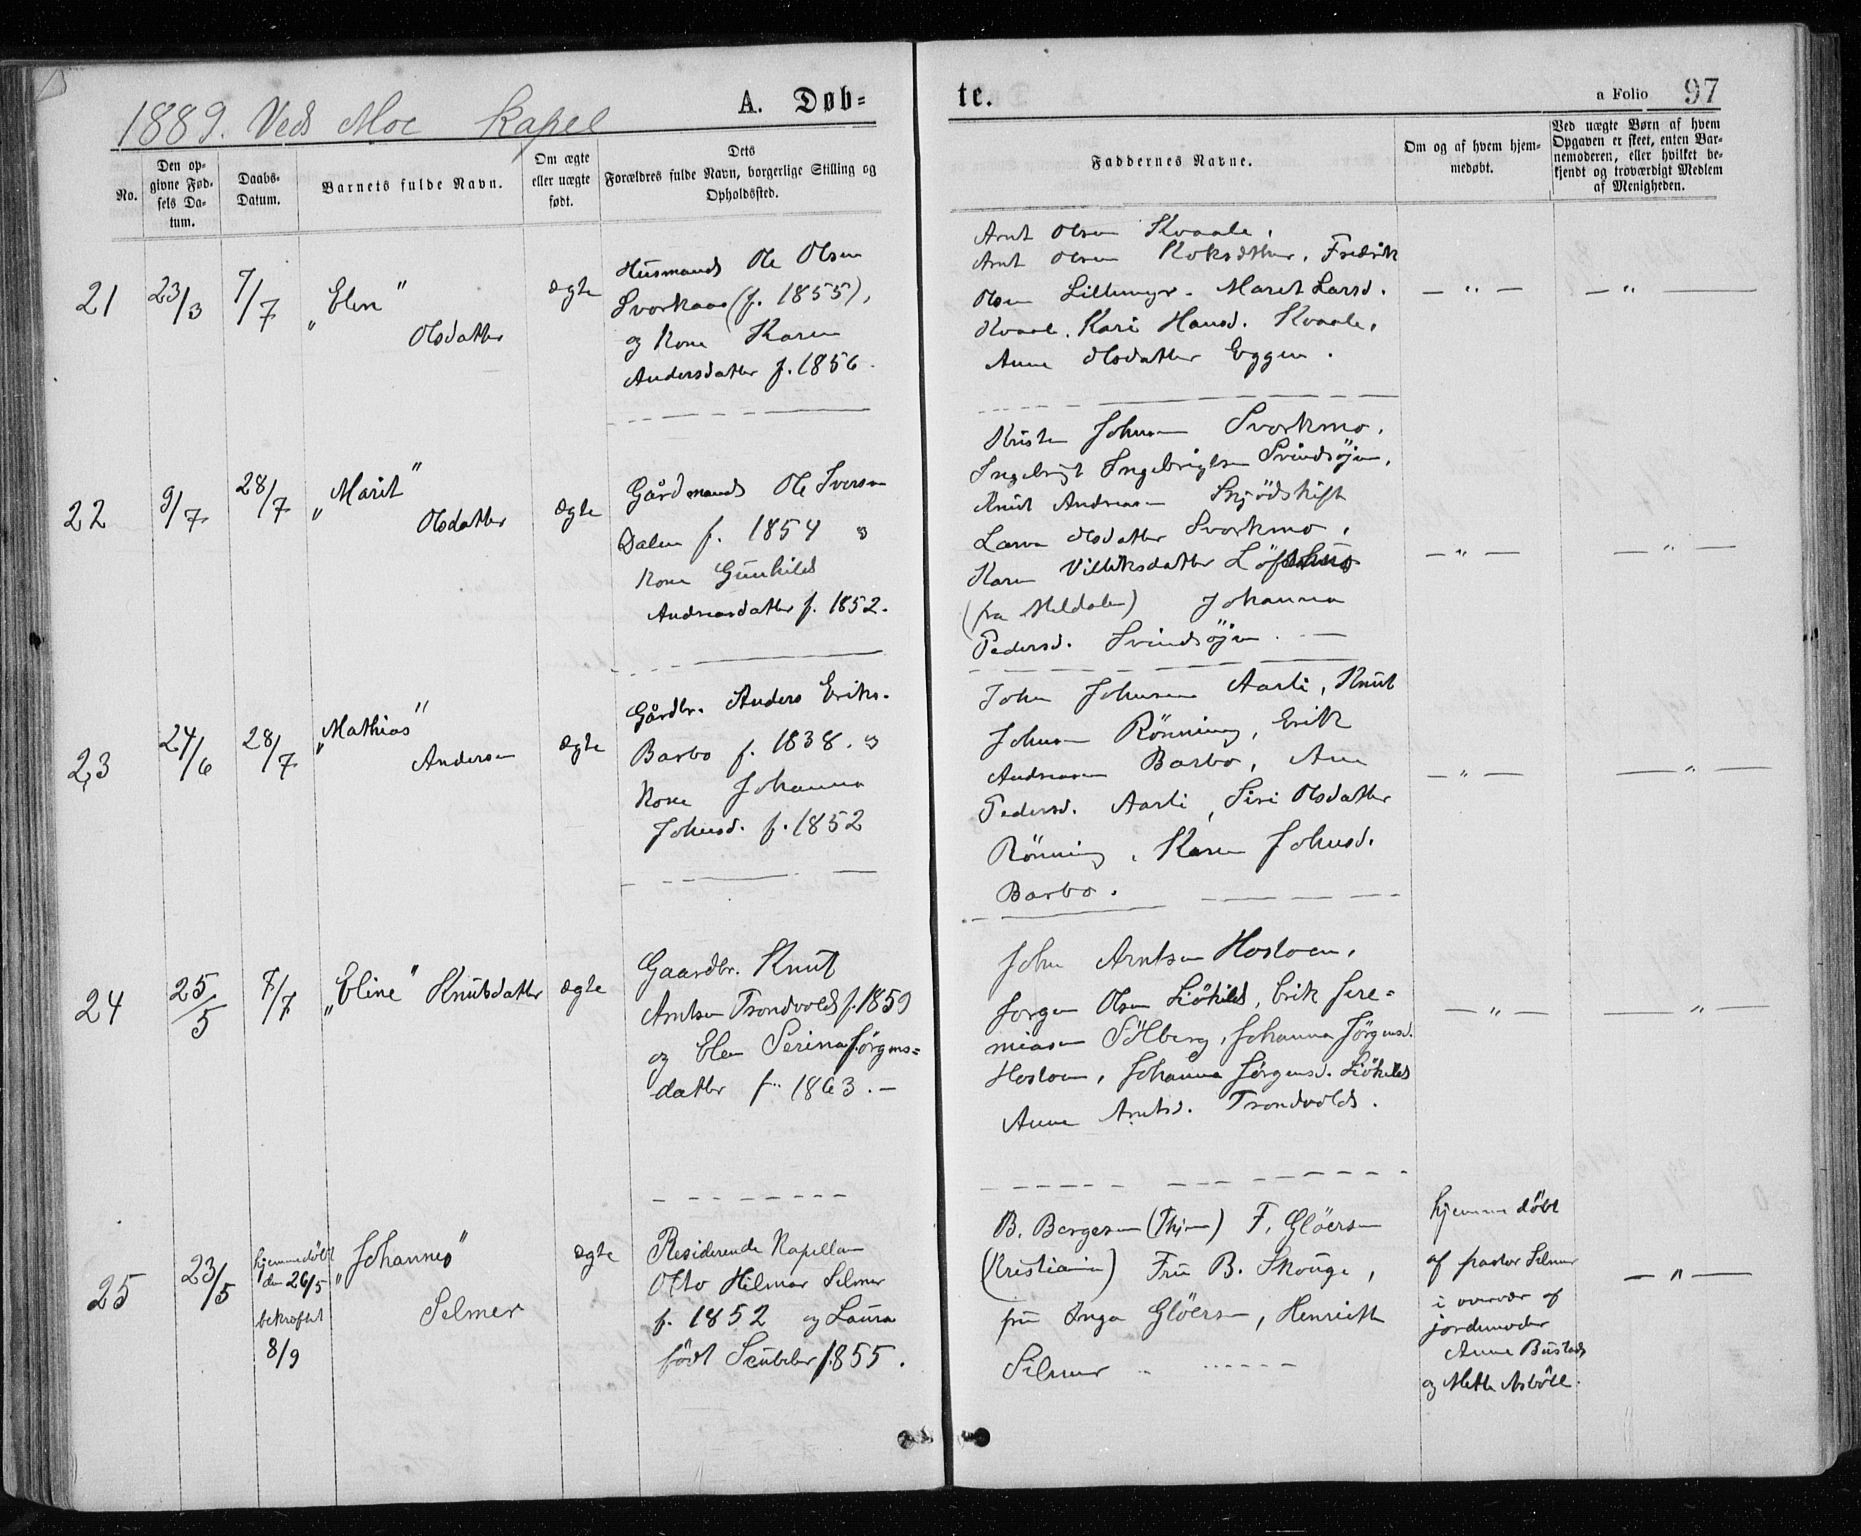 1889. Veds Moe Kapel
A. Døb=
te.
a Folio 97
No.
Den op-
givne Fød-
sels Da-
tum.
Daabs-
Datum.
Barnets fulde Navn.
Om ægte
eller uægte
født.
Dets
Forældres fulde Navn, borgerlige Stilling og
Opholdssted.
Faddernes Navne.
Om og af hvem hjem-
medøbt.
Ved uægte Børn af hvem
Opgaven er skeet, enten Bar-
nemoderen, eller hvilket be-
kjendt og troværdigt Medlem
af Menigheden.
21
23/3
7/7
"Elen"
Olsdatter
ægte
Husmands Ole Olsen
Svorkaas (f. 1855),
og Kone Karen
Andersdatter f. 1856.
Arnt Olsen Kvaale,
Arnt Olsen Fredrik
Olsen Lillemyr. Maret Larsd.
Kvaal. Kari Hansd. Kvaale,
Anne Olsdatter Eggen.
— " —
— " —
22
9/7
28/7
"Marit"
Olsdatter
ægte
Gårdmands Ole Iversen
Dalen f. 1854 og
Kone Gunhild
Andreasdatter f. 1852.
Kristen Johnsen Svorkmo.
Ingebrigt Ingebrigtsen Svindsøjen,
Knut Andreasen Skjødskift
Larva Olsdatter Svorkmo,
Karen
(fra Meldalen) Johanna
Pedersd. Svindsøjen. —
— " —
— " —
23
24/6
28/7
"Mathias"
Andersen
ægte
Gårdbr. Anders Eriks.
Barbo f. 1838. og
Kone Johanna
Johnsd. f. 1852
John Johnsen Aarli, Knut
Johnsen Rönning, Erik
Andreasen Barbo, Ane
Pedersd. Aarli, Siri Olsdatter
Rönning, Karen Johnsd.
Barbo.
— " —
— " —
24
25/5
7/7
"Eline" Knutsdatter
ægte
Gaardbr. Knut
Arntsen Trondvold f. 1859
og Elen Serina Jørgens=
datter f. 1863. —
John Arntsen Hosloen,
Jorgen Olsen Erik Jere=
miasen Sölberg, Johanna Jørgensd.
Hosloen, Johanna Jørgensd.
Anne Arntsd. Trondvolds.
— " —
— " —
25
23/5
hjemmedøbt
den 26/5
bekræftet
8/9
"Johannes"
Selmer
ægte
Residerende Kapellan
Otto Hilmar Selmer
f. 1852 og Laura
född 1855.
B. Borgersen (Thjem) F. Glöersen
(Kristiania) Fru B. Skouge,
fru Inga Glöersen, Henriette
Selmer
hjemmedöbt
af pastor Selmer
i overvær af
jordemoder
Anne Bustad
og Mette Asböll.
— " —